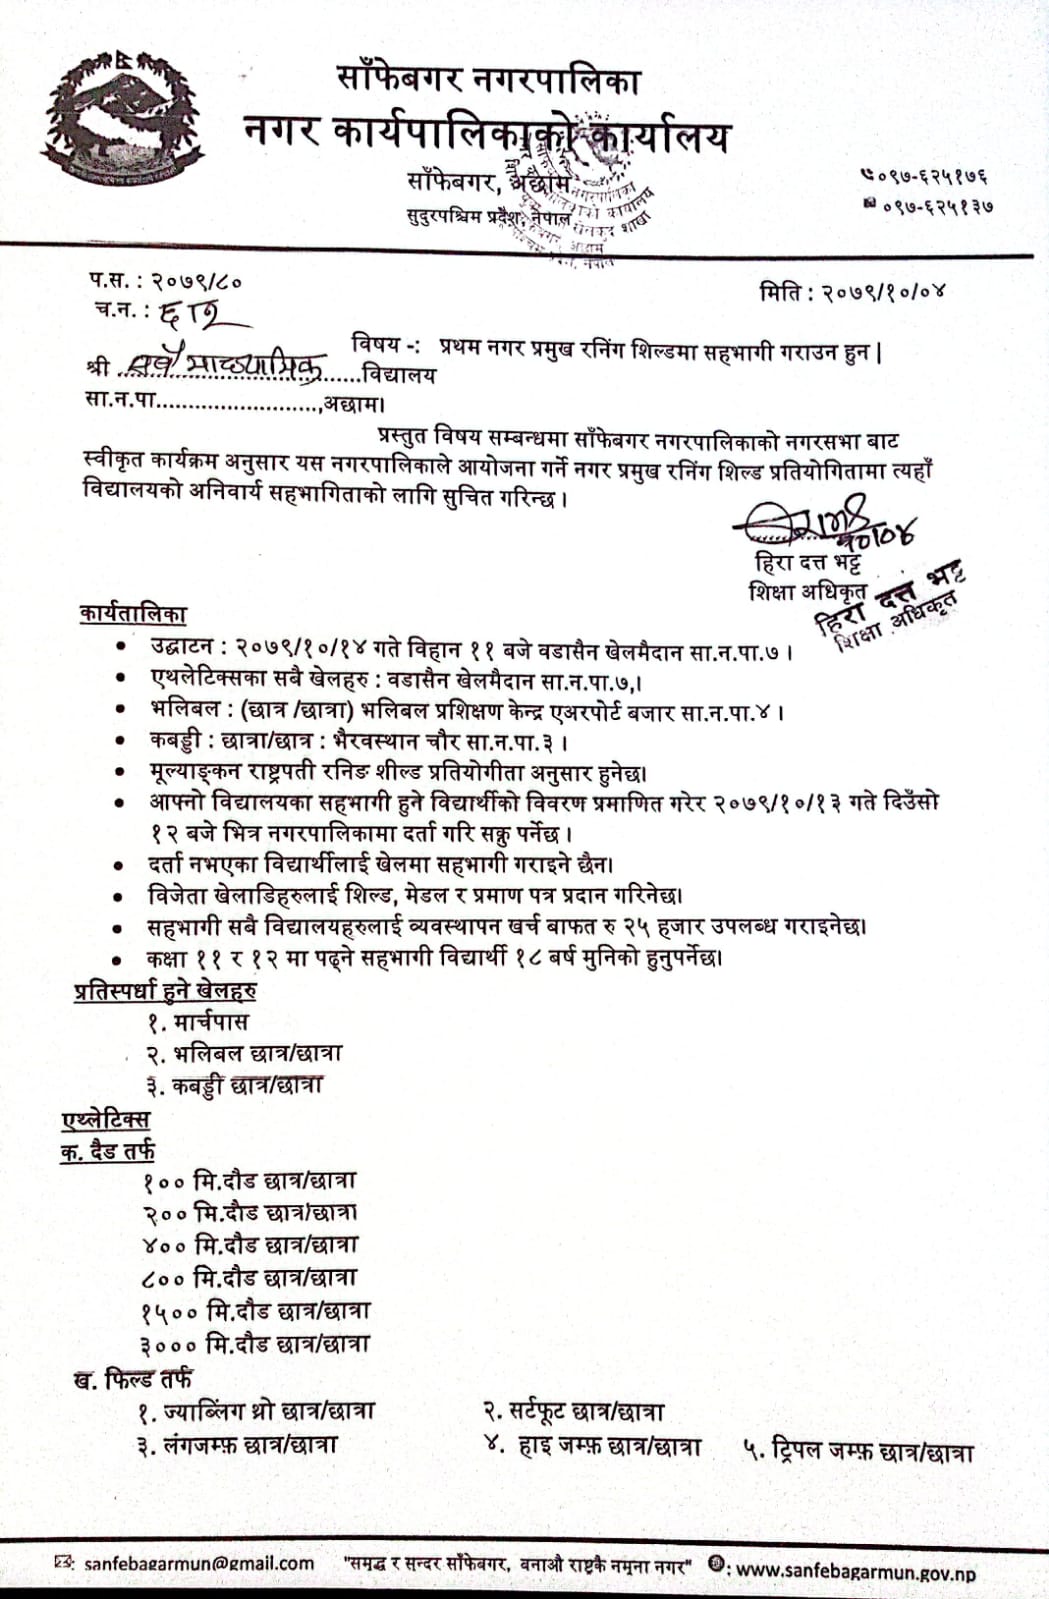 साँफेबगर नगरपालिका
नगर कार्यपालिकाको कार्यालय
साँफेबगर, अछाम
सुदुरपश्चिम प्रदेश, नेपाल
०९७-६२५१७६
०९७-६२५१३७
प.स. : २०७९/८०
च.न. :
मिति : २०७९/१०/०४
विषय -: प्रथम नगर प्रमुख रनिंग शिल्डमा सहभागी गराउन हुन |
श्री सबै माध्यामिक विद्यालय
सा.न.पा.........................,अछाम।
प्रस्तुत विषय सम्बन्धमा साँफेबगर नगरपालिकाको नगरसभा बाट
स्वीकृत कार्यक्रम अनुसार यस नगरपालिकाले आयोजना गर्ने नगर प्रमुख रनिंग शिल्ड प्रतियोगितामा त्यहाँ
विद्यालयको अनिवार्य सहभागिताको लागि सुचित गरिन्छ ।
१०।०४
हिरा दत्त भट्ट
शिक्षा अधिकृत
हिरा दत्त भट्ट
शिक्षा अधिकृत
कार्यतालिका
• उद्घाटन : २०७९/१०/१४ गते विहान ११ बजे वडासैन खेलमैदान सा.न.पा.७ ।
• एथलेटिक्सका सबै खेलहरु : वडासैन खेलमैदान सा.न.पा.७,।
• भलिबल : (छात्र /छात्रा) भलिबल प्रशिक्षण केन्द्र एअरपोर्ट बजार सा.न.पा.४ ।
• कबड्डी : छात्रा/छात्र : भैरवस्थान चौर सा.न.पा.३ ।
• मूल्याङ्कन राष्ट्रपती रनिङ शील्ड प्रतियोगीता अनुसार हुनेछ।
• आफ्नो विद्यालयका सहभागी हुने विद्यार्थीको विवरण प्रमाणित गरेर २०७९/१०/१३ गते दिउँसो
१२ बजे भित्र नगरपालिकामा दर्ता गरि सक्नु पर्नेछ ।
• दर्ता नभएका विद्यार्थीलाई खेलमा सहभागी गराइने छैन।
• विजेता खेलाडिहरुलाई शिल्ड, मेडल र प्रमाण पत्र प्रदान गरिनेछ।
• सहभागी सबै विद्यालयहरुलाई व्यवस्थापन खर्च बाफत रु २५ हजार उपलब्ध गराइनेछ।
• कक्षा ११ र १२ मा पढ्ने सहभागी विद्यार्थी १८ बर्ष मुनिको हुनुपर्नेछ।
प्रतिस्पर्धा हुने खेलहरु
१. मार्चपास
२. भलिबल छात्र/छात्रा
३. कबड्डी छात्र/छात्रा
एथ्लेटिक्स
क. दैड तर्फ
१०० मि.दौड छात्र/छात्रा
२०० मि.दौड छात्र/छात्रा
४०० मि.दौड छात्र/छात्रा
८०० मि.दौड छात्र/छात्रा
१५०० मि.दौड छात्र/छात्रा
३००० मि.दौड छात्र/छात्रा
ख. फिल्ड तर्फ
१. ज्याब्लिंग थ्रो छात्र/छात्रा २. सर्टफूट छात्र/छात्रा
३. लंगजम्फ़ छात्र/छात्रा ४. हाइ जम्फ़ छात्र/छात्रा ५. ट्रिपल जम्फ़ छात्र/छात्रा
: sanfebagarmun@gmail.com "समृद्ध र सुन्दर साँफेबगर, वनाऔ राष्ट्रकै नमूना नगर" : www.sanfebagarmun.gov.np